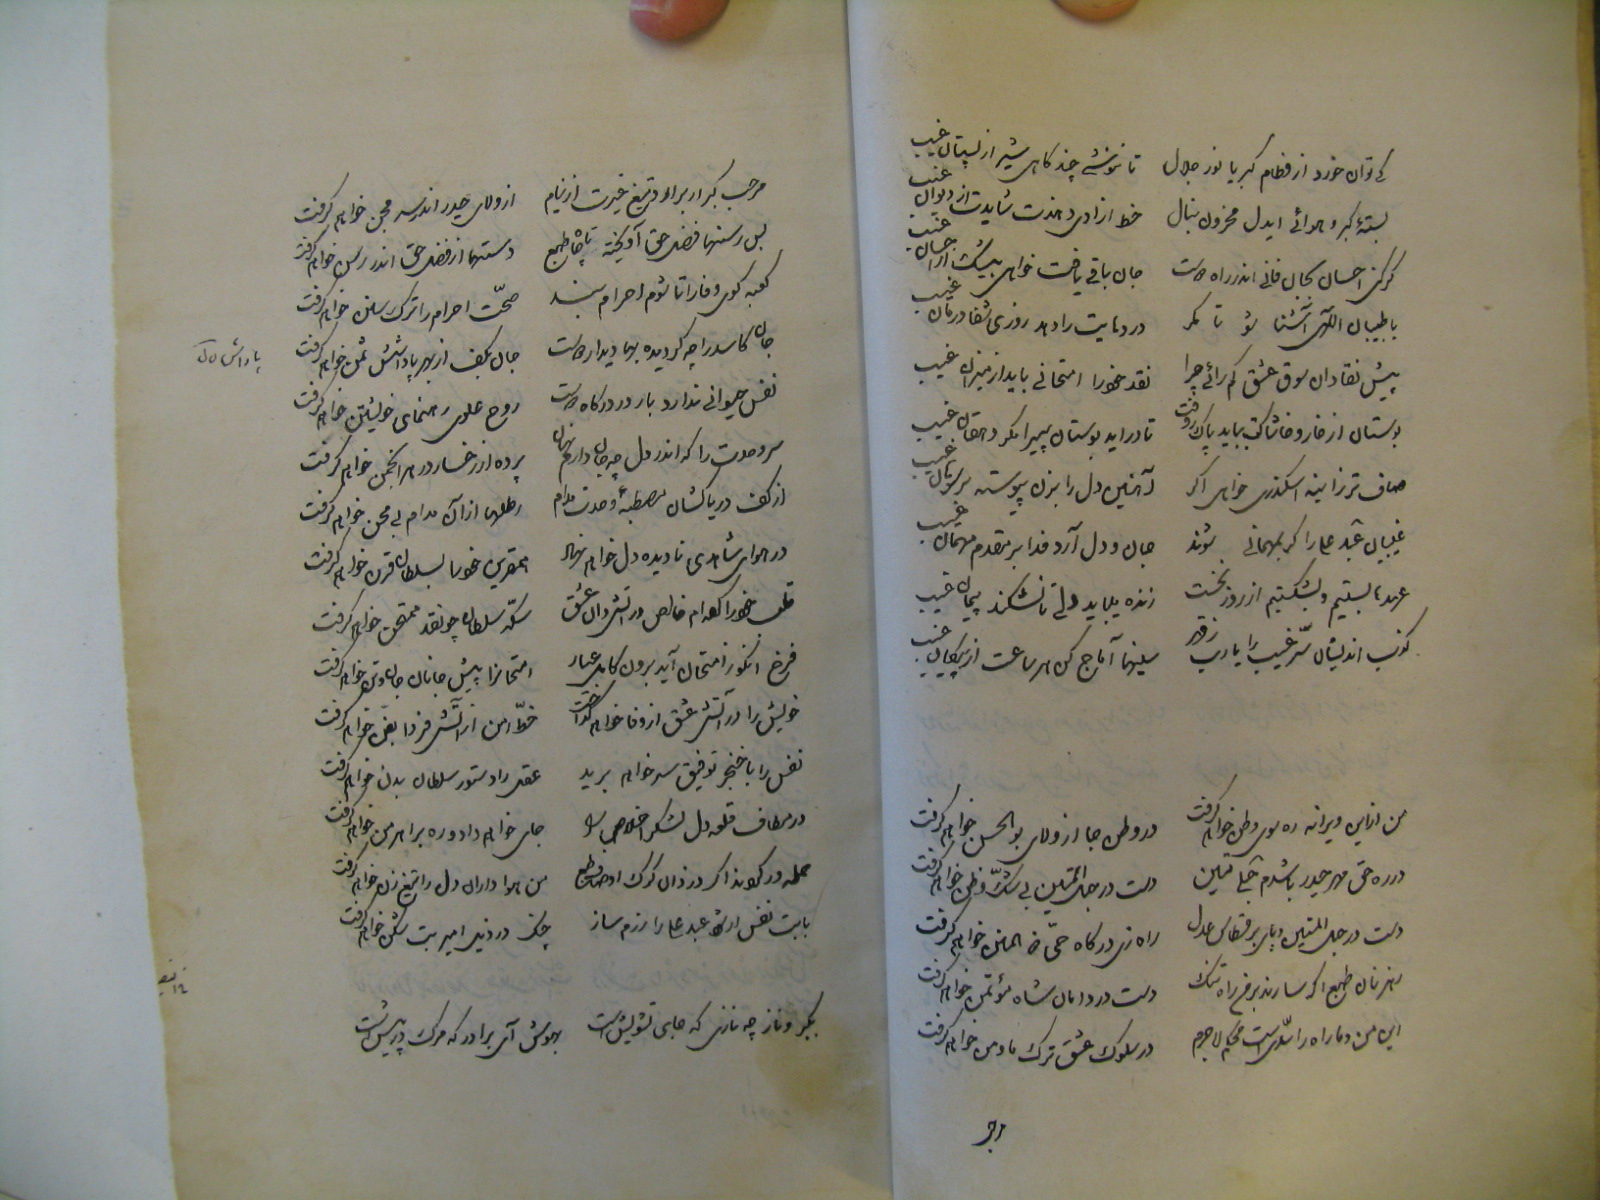 کی توان خورد از فطام کبریا نور جلال تا ننوشی چند گاهی شیر از پستان غیب
بستهٔ کبر و هوائی ایدل محزون بنال خط ازادی دهندت شاید از دیوان غیب
گر کنی احسان بجان فانی اندر راه دوست جان باقی یافت خواهی بیشک از احسان غیب
با طبیبان الهی آشنا شو تا مگر دردهایت را دهد روزی شفا درمان غیب
پیش نقادان سوق عشق کم رائی چرا نقد خود را امتحانی باید از میزان غیب
بوستان از خار و خاشاکت بباید پاک رفت تا دراید بوستان پیرا مگر دهقان غیب
صاف تر زایینه اسکندری خواهی اگر آهنین دل را بزن پیوسته بر سوهان غیب
غیبیان عبد علی را گر بمهمانی شوند جان و دل آرد فدا بر مقدم مهمان غیب
عهدها بستیم و بشکستیم از روز نخست زنده بباید دلی تا نشکند پیمان غیب
کوب اندیشان سرّ غیب را یا رب سینها آماج کن هر ساعت از پیکان غیب
من ازاین ویرانه ره سوی وطن خواهم گرفت در وطن جا از ولای بوالحسن خواهم گرفت
در ره حق مهر حیدر باشدم حبل متین دست در حبل المتین بی شک و ظن خواهم گرفت
دست در حبل المتین و پای بر قسطاس عدل راه زی درگاه حیّ ذو المنن خواهم گرفت
رهزنان طمع اگر سازند بر من راه تنگ دست در دامان شاه مؤتمن خواهم گرفت
این من و ما راه را سدّی است محکم لاجرم در سلوک عشق ترک ما و من خواهم گرفت
مرحب کبر ار برارد تیغ غیرت از نیام از ولای حیدر اندر سر مجن خواهم گرفت
بس رسنها فضل حق آویخته تا چاه طبع دستها از فضل حق اندر رسن خواهم گرفت
کعبه کوی وفا را تا شوم احرام بند صحّت احرام را ترک سنن خواهم گرفت
جان کاسد را چه گردیده بها دیدار دوست جان بکف از بهر پاداشش ثمن خواهم گرفت
نفس حیوانی ندارد بار در درگاه دوست روح علوی رهنمای خویشتن خواهم گرفت
سر وحدت را که اندر دل چه جان دارم نهان پرده از رخسار در هر انجمن خواهم گرفت
از کف دریاکشان مصطبهٔ وحدت مدام رطلها از آن مدام بی محن خواهم گرفت
در هوای شاهدی نادیده دل خواهم نهاد همقرین خود را بسلطان قرن خواهم گرفت
قلب خود را کرده ام خالص در آتشدان عشق سکّه سلطان چو نقد ممتحن خواهم گرفت
فرخ انکو ز امتحان آید برون کامل عیار امتحانرا پیش جانان جان و تن خواهم گرفت
خویش را در آتش عشق از وفا خواهم گداخت خطّ امن از آتش فردا بفن خواهم گرفت
نفس را با خنجر توفیق سر خواهم برید عقل را دستور سلطان بدن خواهم گرفت
در مطاف قلعه دل لشکر اخلاص را جای خواهم داد و ره بر اهرمن خواهم گرفت
حمله ور گردند اگر دزدان گرگ اوصاف طبع من هوا داران دل را تیغ زن خواهم گرفت
با بت نفس ار شود عبد علی را رزم ساز چنگ در ذیل امیر بت شکن خواهم گرفت
بکبر و ناز چه نازی که جای تشویش است بهوش آی برادر که مرگ در پیش است
پاداش